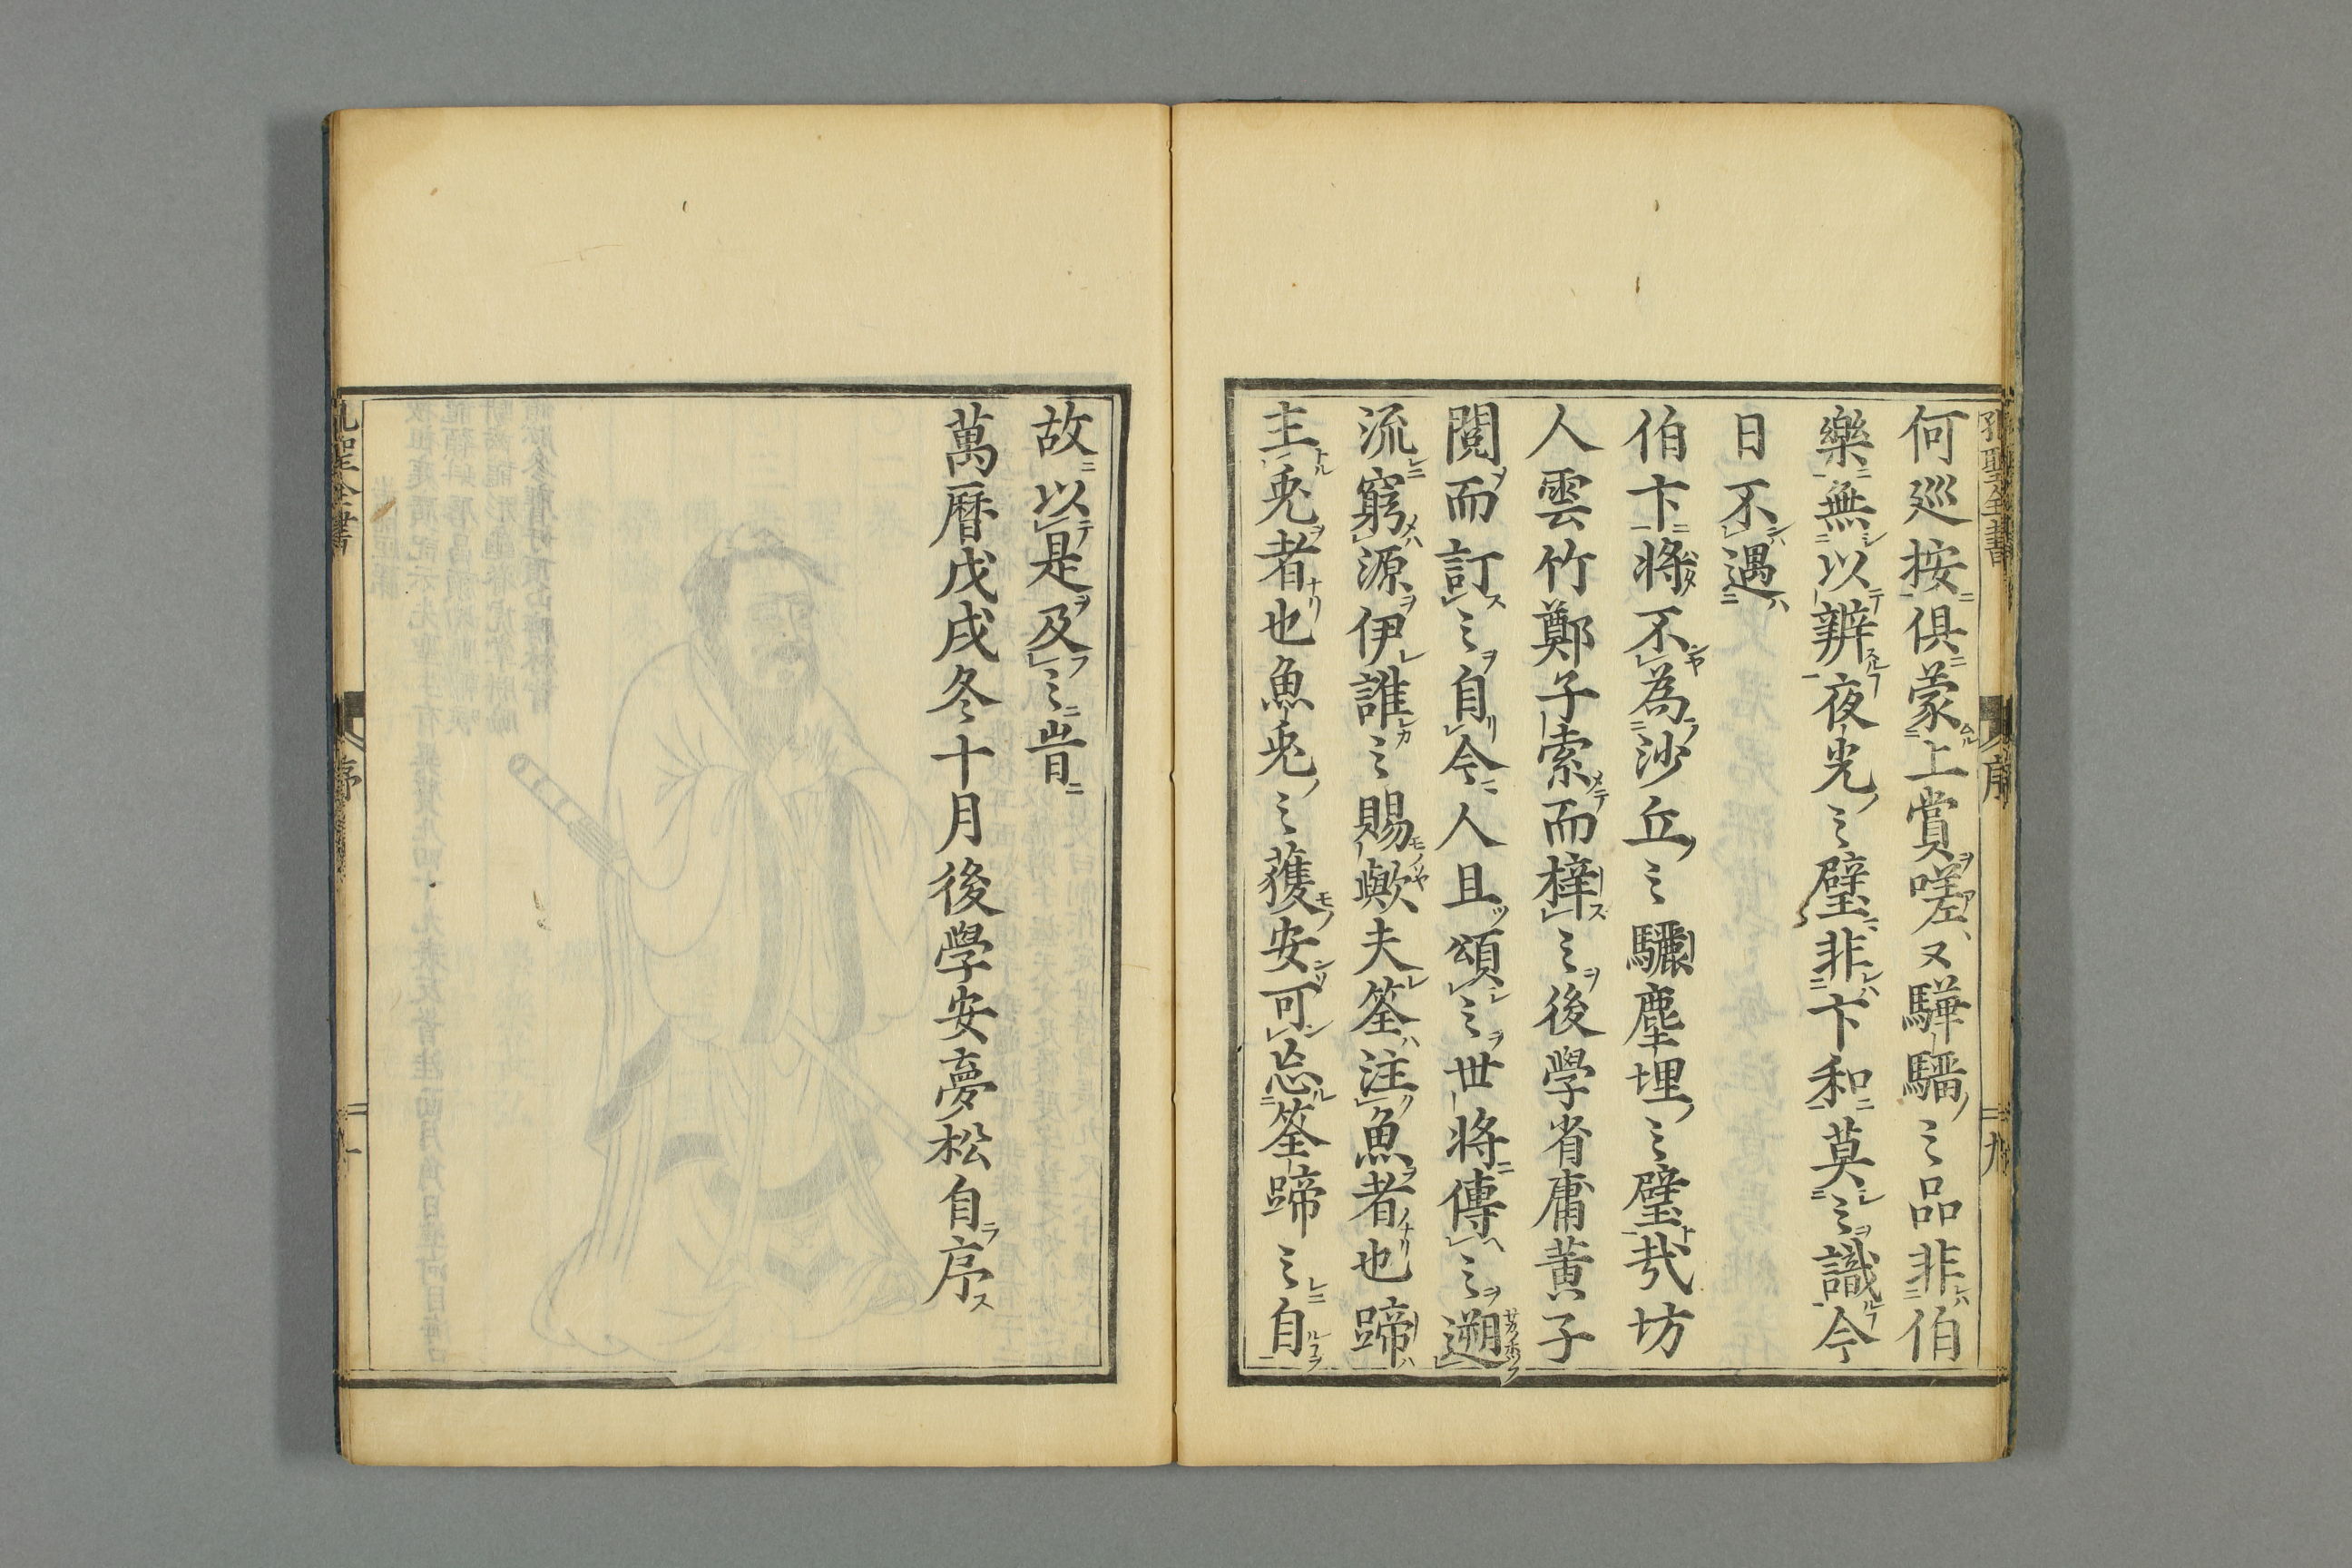 孔聖全書 序 九
何廵按俱蒙上賞嗟又驊騮之品非伯
樂無以辨夜光之璧非卞和莫之識今
日不遇
伯卞將不為沙丘之驪塵埋之璧㦲坊
人雲竹鄭子索而梓之後學省庸黃子
閱而訂之自今人且頌之世將傳之遡
流窮源伊誰之賜歟夫筌注魚者也蹄
主兎者也魚兎之獲安可忘筌蹄之自
故以是及之旹
萬曆戊戌冬十月後學安夢松自序
孔聖全書 序 十